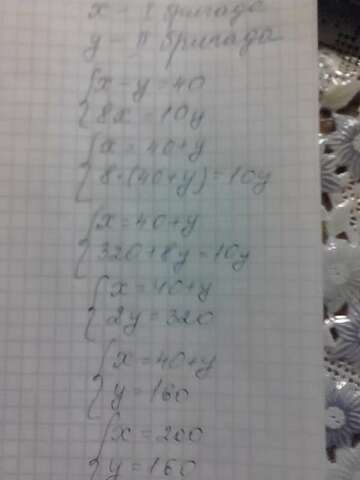 x – I бригада
y – II бригада
{x – y = 40
{8x = 10y
{x = 40+y
{8·(40+y) = 10y
{x = 40+y
{320+8y = 10y
{x = 40+y
{2y = 320
{x = 40+y
{y = 160
{x = 200
{y = 160